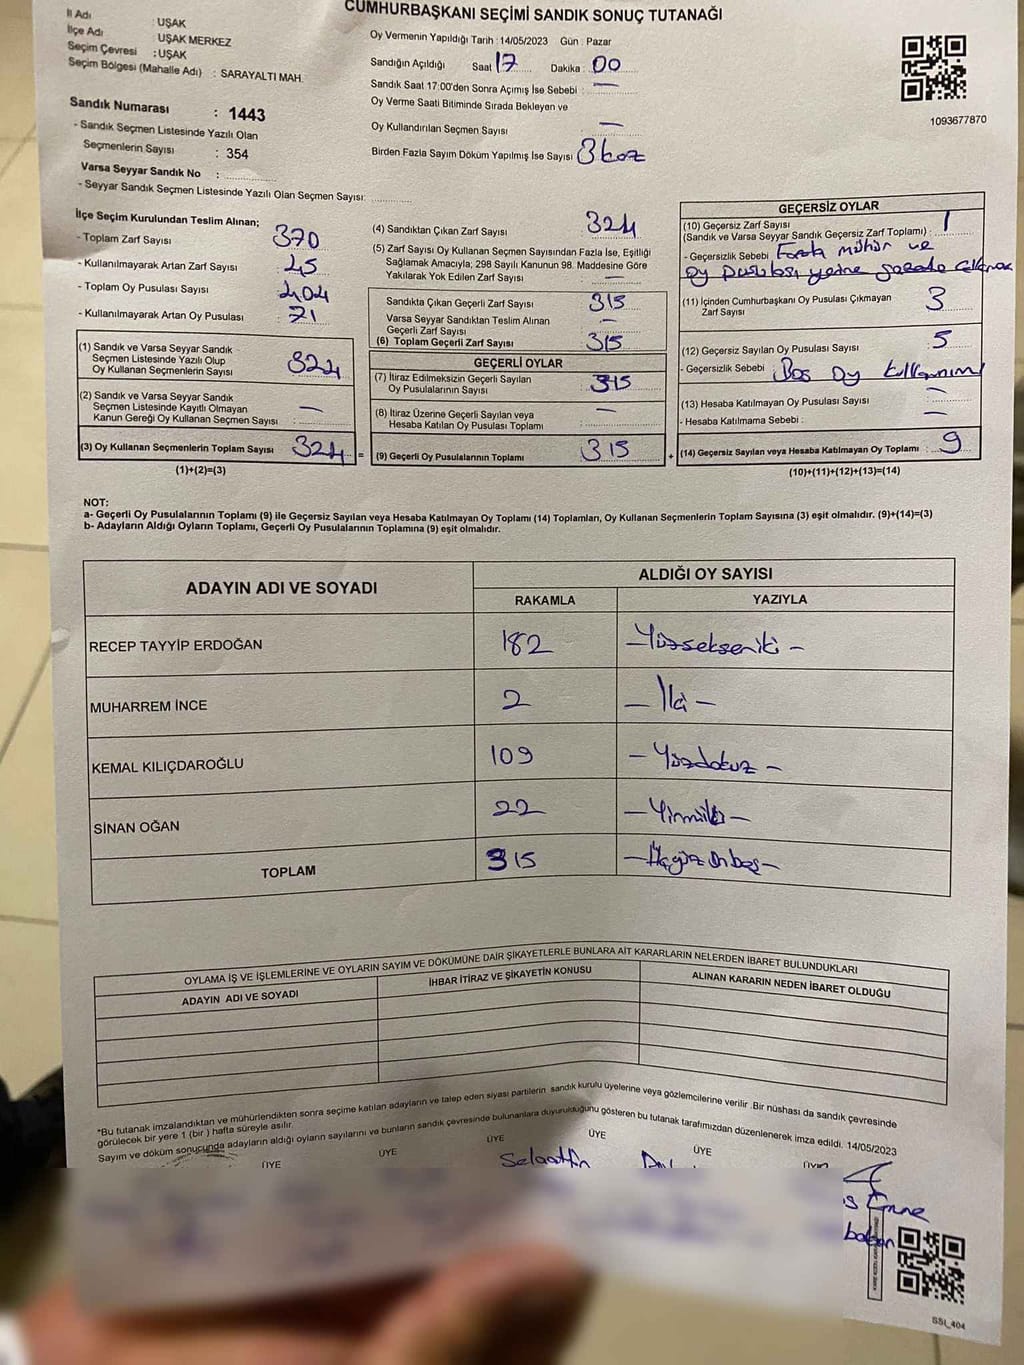 CUMHURBAŞKANI SEÇİMİ SANDIK SONUÇ TUTANAĞI
İl Adı : UŞAK
İlçe Adı : UŞAK MERKEZ
Seçim Çevresi : UŞAK
Seçim Bölgesi (Mahalle Adı) : SARAYALTI MAH.
Sandık Numarası : 1443
- Sandık Seçmen Listesinde Yazılı Olan
Seçmenlerin Sayısı : 354
Varsa Seyyar Sandık No :
- Seyyar Sandık Seçmen Listesinde Yazılı Olan Seçmen Sayısı:
Oy Vermenin Yapıldığı Tarih : 14/05/2023 Gün : Pazar
Sandığın Açıldığı Saat 17 Dakika : 00
Sandık Saat 17:00'den Sonra Açımış İse Sebebi : —
Oy Verme Saati Bitiminde Sırada Bekleyen ve
Oy Kullandırılan Seçmen Sayısı : —
Birden Fazla Sayım Döküm Yapılmış İse Sayısı 3 kez
1093677870
İlçe Seçim Kurulundan Teslim Alınan;
- Toplam Zarf Sayısı : 370
- Kullanılmayarak Artan Zarf Sayısı : 45
- Toplam Oy Pusulası Sayısı : 404
- Kullanılmayarak Artan Oy Pusulası : 71
(1) Sandık ve Varsa Seyyar Sandık
Seçmen Listesinde Yazılı Olup
Oy Kullanan Seçmenlerin Sayısı : 324
(2) Sandık ve Varsa Seyyar Sandık
Seçmen Listesinde Kayıtlı Olmayan
Kanun Gereği Oy Kullanan Seçmen Sayısı : —
(3) Oy Kullanan Seçmenlerin Toplam Sayısı : 324 =
(1)+(2)=(3)
(4) Sandıktan Çıkan Zarf Sayısı : 324
(5) Zarf Sayısı Oy Kullanan Seçmen Sayısından Fazla İse, Eşitliği
Sağlamak Amacıyla, 298 Sayılı Kanunun 98. Maddesine Göre
Yakılarak Yok Edilen Zarf Sayısı : —
Sandıkta Çıkan Geçerli Zarf Sayısı : 315
Varsa Seyyar Sandıktan Teslim Alınan
Geçerli Zarf Sayısı : —
(6) Toplam Geçerli Zarf Sayısı : 315
GEÇERLİ OYLAR
(7) İtiraz Edilmeksizin Geçerli Sayılan
Oy Pusulalarının Sayısı : 315
(8) İtiraz Üzerine Geçerli Sayılan veya
Hesaba Katılan Oy Pusulası Toplamı : —
(9) Geçerli Oy Pusulalarının Toplamı : 315 +
GEÇERSİZ OYLAR
(10) Geçersiz Zarf Sayısı
(Sandık ve Varsa Seyyar Sandık Geçersiz Zarf Toplamı) : 1
- Geçersizlik Sebebi : Fazla mühür ve
oy pusulası yerine
(11) İçinden Cumhurbaşkanı Oy Pusulası Çıkmayan
Zarf Sayısı : 3
(12) Geçersiz Sayılan Oy Pusulası Sayısı : 5
- Geçersizlik Sebebi : Boş oy kullanımı
(13) Hesaba Katılmayan Oy Pusulası Sayısı : —
- Hesaba Katılmama Sebebi : —
(14) Geçersiz Sayılan veya Hesaba Katılmayan Oy Toplamı : 9
(10)+(11)+(12)+(13)=(14)
NOT:
a- Geçerli Oy Pusulalarının Toplamı (9) ile Geçersiz Sayılan veya Hesaba Katılmayan Oy Toplamı (14) Toplamları, Oy Kullanan Seçmenlerin Toplam Sayısına (3) eşit olmalıdır. (9)+(14)=(3)
b- Adayların Aldığı Oyların Toplamı, Geçerli Oy Pusulalarının Toplamına (9) eşit olmalıdır.
ADAYIN ADI VE SOYADI ALDIĞI OY SAYISI
RAKAMLA YAZIYLA
RECEP TAYYİP ERDOĞAN 182 — Yüzsekseniki —
MUHARREM İNCE 2 — İki —
KEMAL KILIÇDAROĞLU 109 — Yüzdokuz —
SİNAN OĞAN 22 — Yirmiiki —
TOPLAM 315 — Üçyüz Onbeş —
OYLAMA İŞ VE İŞLEMLERİNE VE OYLARIN SAYIM VE DÖKÜMÜNE DAİR ŞİKAYETLERLE BUNLARA AİT KARARLARIN NELERDEN İBARET BULUNDUKLARI
ADAYIN ADI VE SOYADI İHBAR İTİRAZ VE ŞİKAYETİN KONUSU ALINAN KARARIN NEDEN İBARET OLDUĞU
*Bu tutanak imzalandıktan ve mühürlendikten sonra seçime katılan adayların ve talep eden siyasi partilerin sandık kurulu üyelerine veya gözlemcilerine verilir .Bir nüshası da sandık çevresinde
görülecek bir yere 1 (bir ) hafta süreyle asılır.
Sayım ve döküm sonucunda adayların aldığı oyların sayılarını ve bunların sandık çevresinde bulunanlara duyurulduğunu gösteren bu tutanak tarafımızdan düzenlenerek imza edildi. 14/05/2023
ÜYE ÜYE ÜYE ÜYE ÜYE
Selaattin
Emne
SSI_404